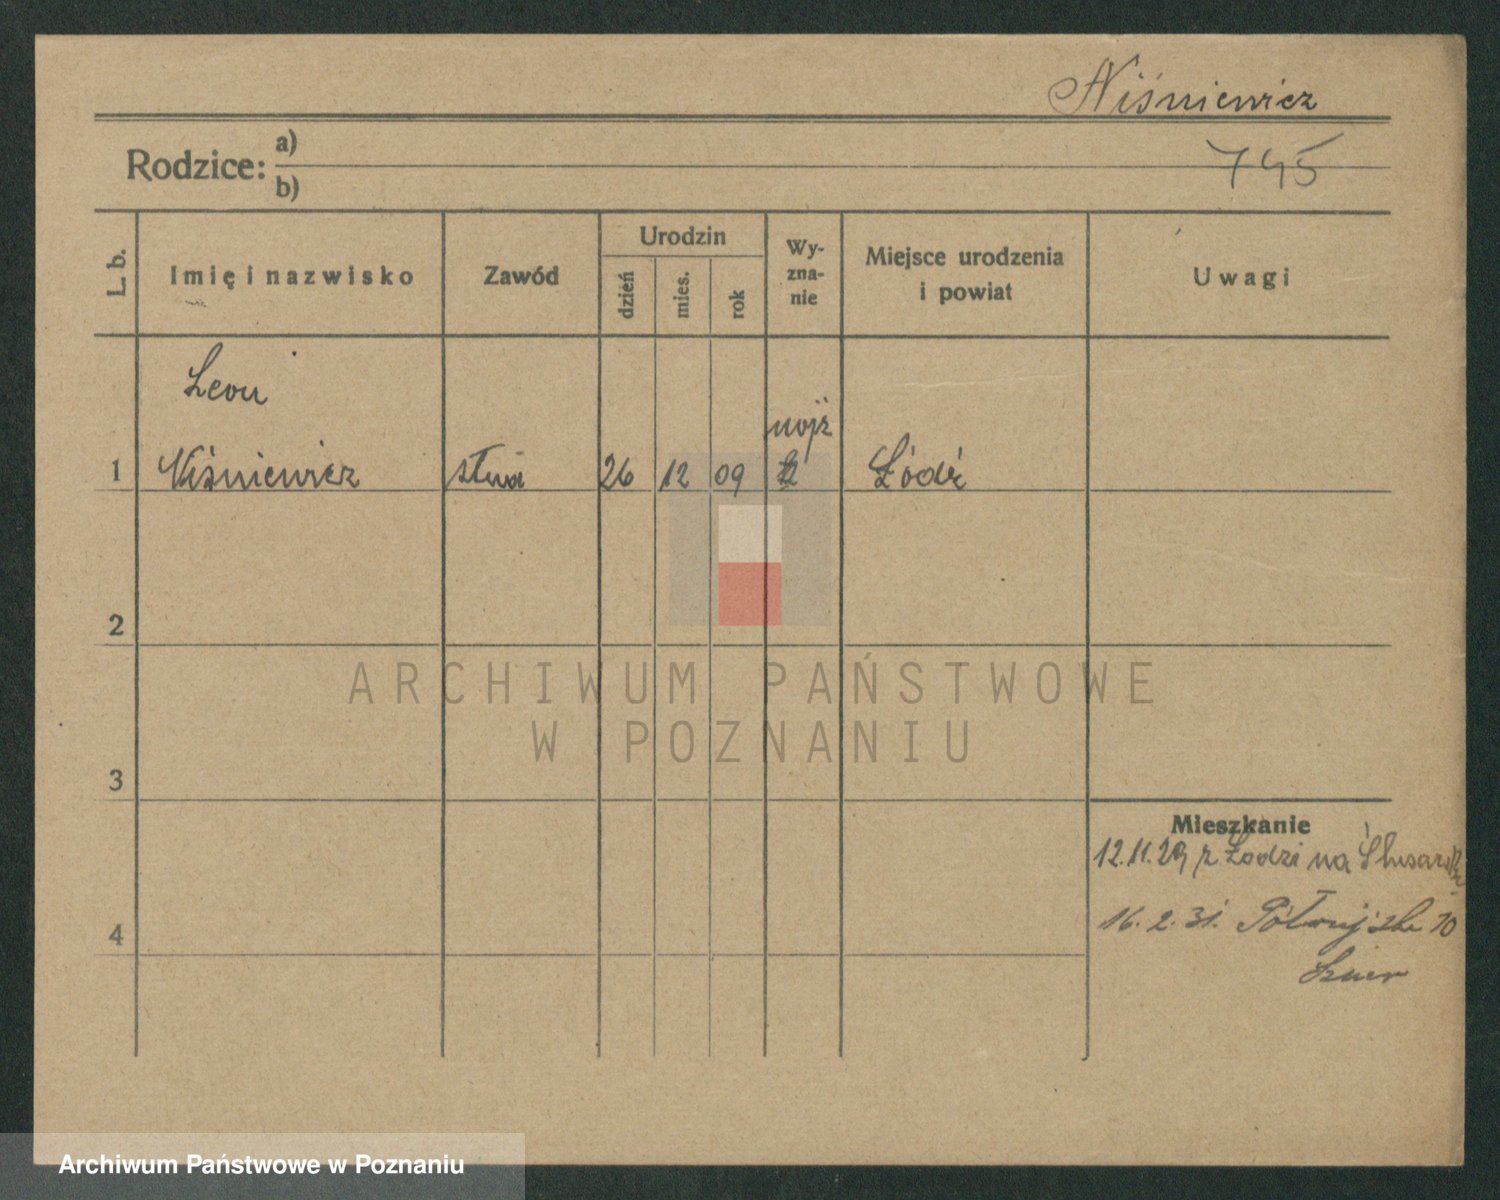 Niśniewicz
745
Rodzice: a)
b)
L. b.
Imię i nazwisko
Zawód
Urodzin
dzień
mies.
rok
Wy-
zna-
nie
Miejsce urodzenia
i powiat
Uwagi
Leon
mojż
1 Niśniewicz 26 12 09 Łódź
2
ARCHIWUM PAŃSTWOWE
W POZNANIU
3
Mieszkanie
12.11.29 z Łodzi na
4 16.2.31. 10
Archiwum Państwowe w Poznaniu